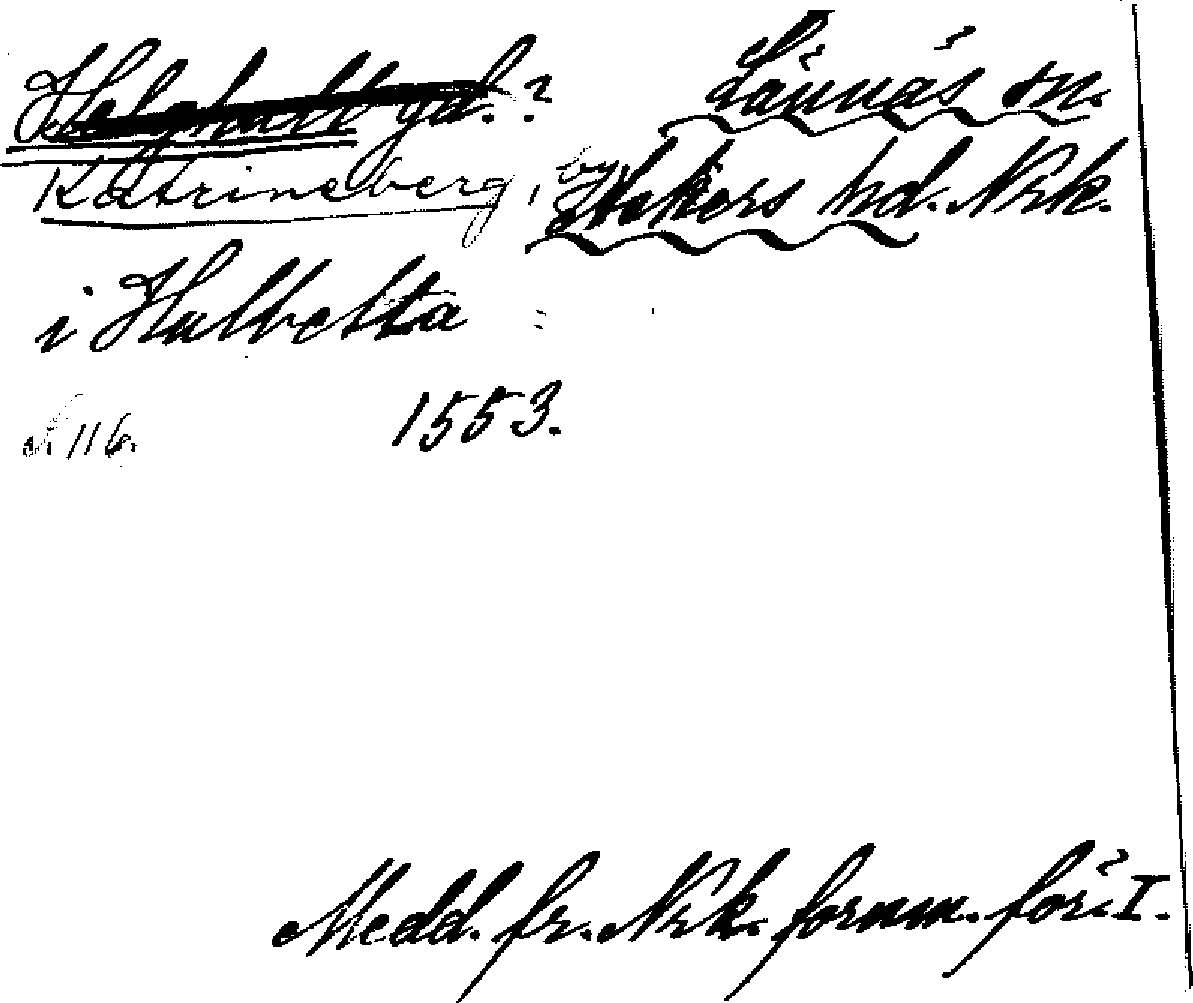 Helghult gd.? Lännäs sn.
Katrineberg, by Askers hd. Nrk.
i Hulbetta
s. 116. 1553.
Medd. fr. Nrk. fornm. för. I.